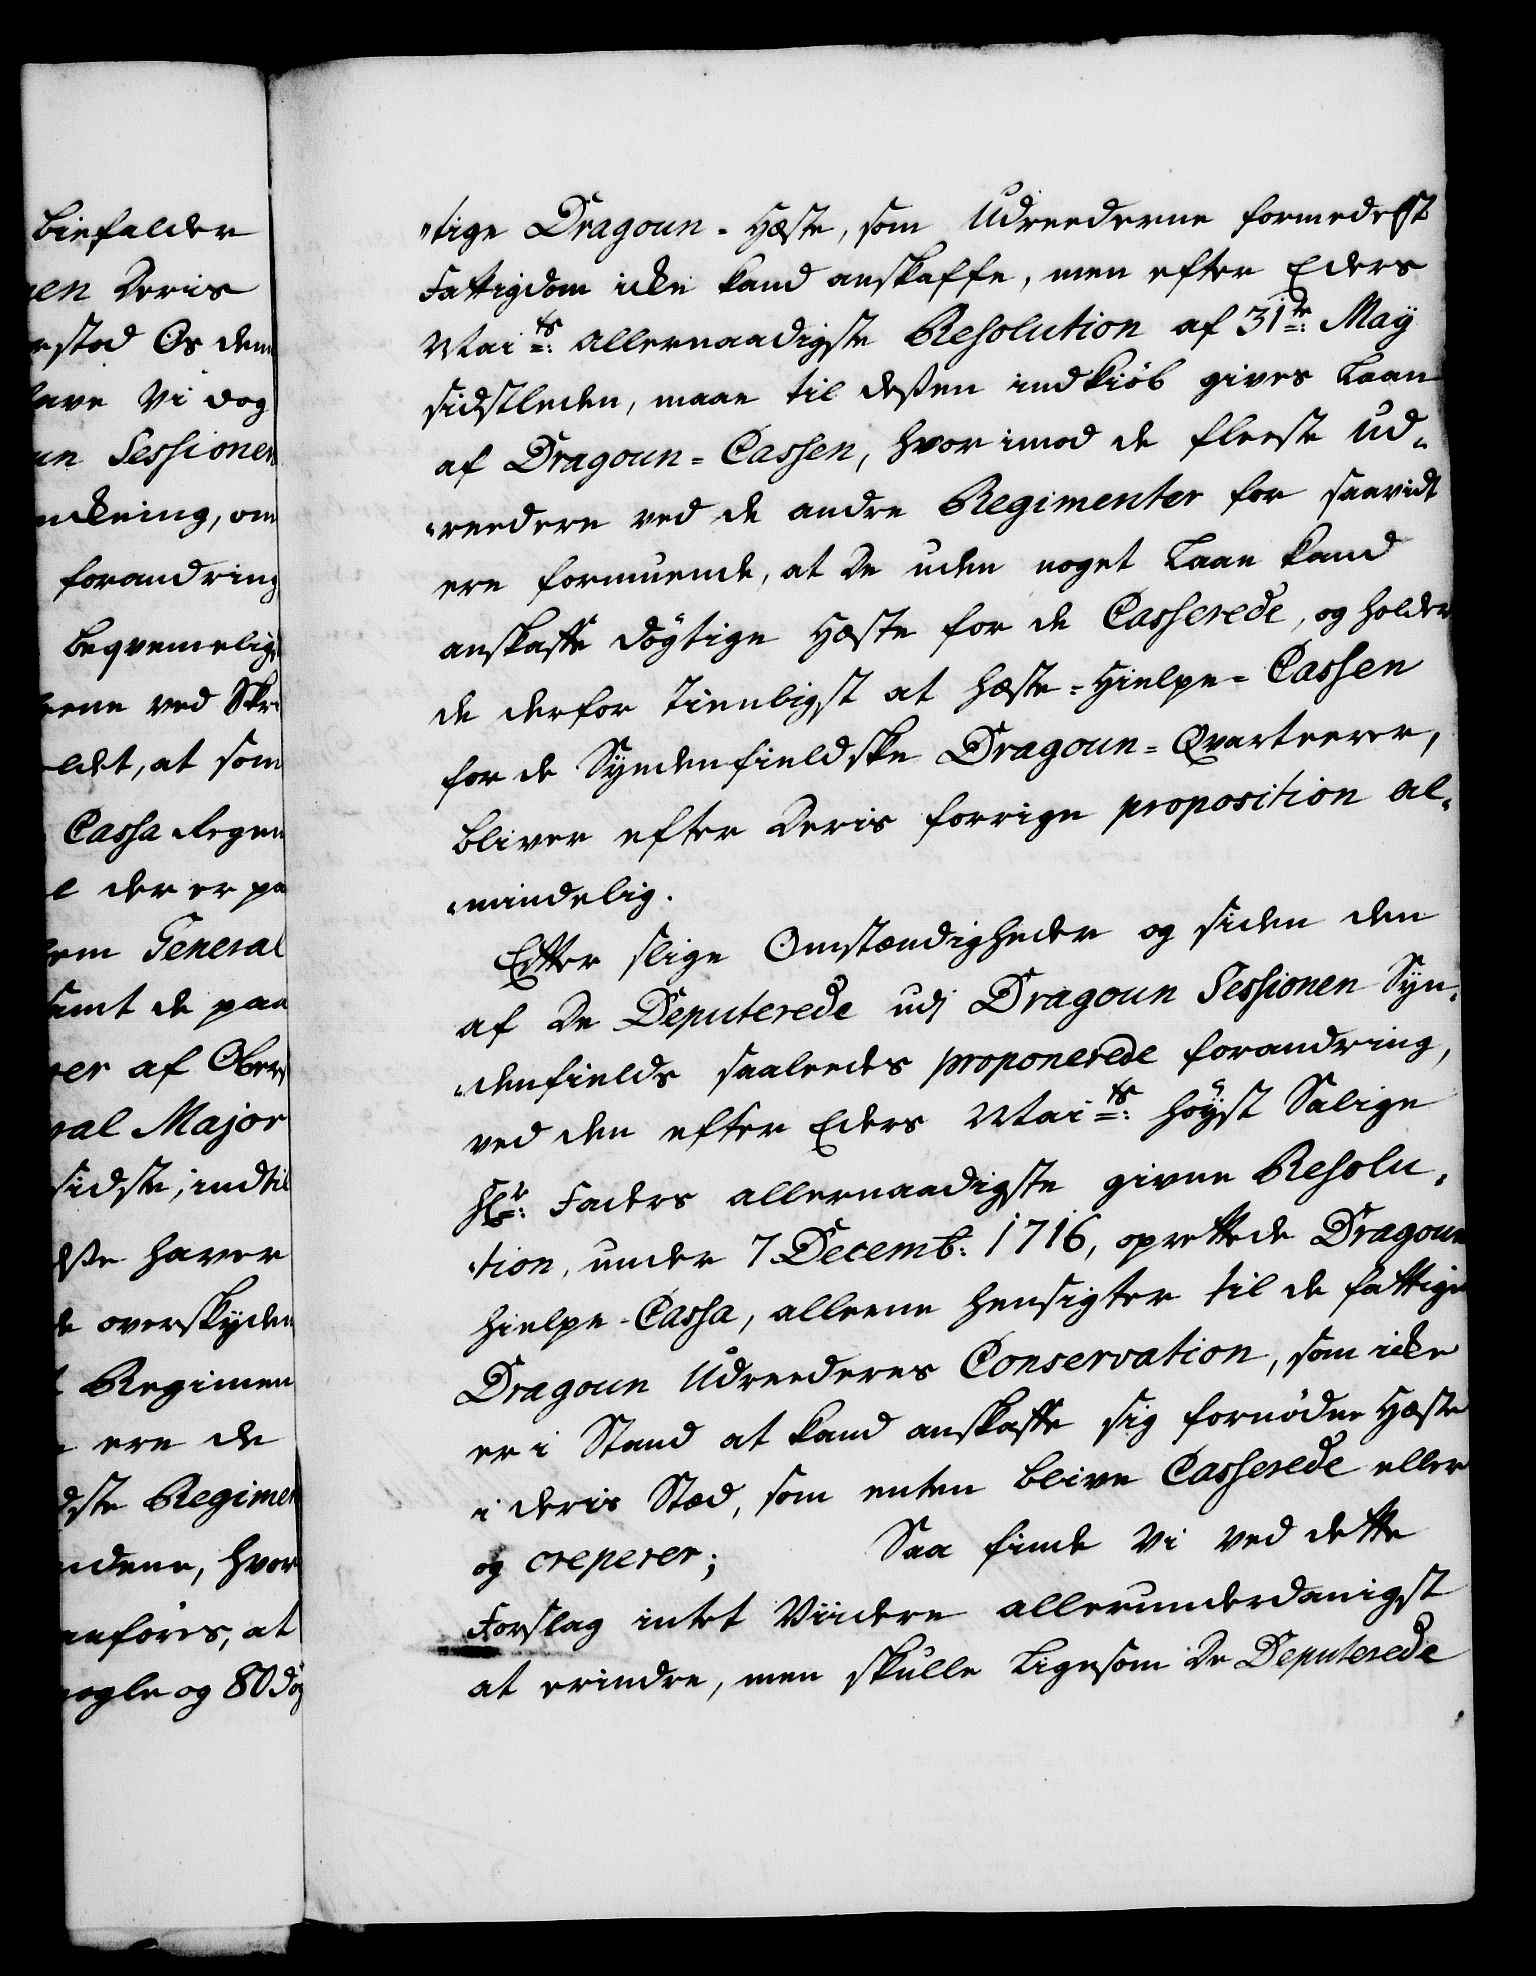 biefalder
en deris
rstod Os dem
ave Vi dog
un Sessionen
nckning, om
forandring
beqvemelig
rene ved Skr
ldet, at som
Cassa Regem
l der er pa
em General
samt de paa
er af Obers
ral Major
sidste, indtil
dße haver
de overskyden
t Regimen
ere de
dste Regimen
ndene, hvor
anføres, at
nogle og 80 døg
„tige Dragoun-Hæste, som Udreederne formedelst
Fattigdom icke kand anskaffe, men efter Eders
Mai:ts allernaadigste Resolution af 31te: Maÿ
sidstleden, maae til deßen indkiöb gives Laan
af Dragoun-Cassen, hvorimod de fleeste Ud„
„reedere ved de andre Regimenter for saavidt
ere formuende, at De uden noget Laan kand
anskaffe dögtige Hæste for de Casserede, og holder
de derfor tienligst at Hæste-Hielpe-Cassen
for de Syndenfieldske Dragoun-Qvarteerer,
bliver efter deris forrige proposition al„
„mindelig.
Efter slige Omstændigheder og siden den
af De Deputerede udj Dragoun Sessionen Syn„
„denfields saaledes proponerede forandring,
ved den efter Eders Mai:ts höÿst Salige
Hr: Faders allernaadigste givne Resolu„
„tion, under 7 Decemb: 1716, oprettede Dragoun
hielpe-Cassa, alleene hensigter til de fattige
Dragoun Udreederes Conservation, som icke
er i Stand at kand anskaffe sig fornødne Hæste
i deris Stæd, som enten blive Casserede eller
og creperer; Saa finde Vi ved dette
Forslag intet Viidere allerunderdanigst
at erindre, men skulle ligesom De Deputerede